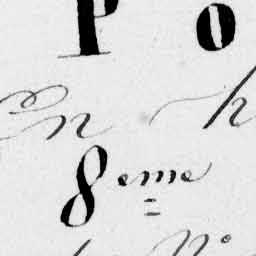 P O
En h
8eme
N°